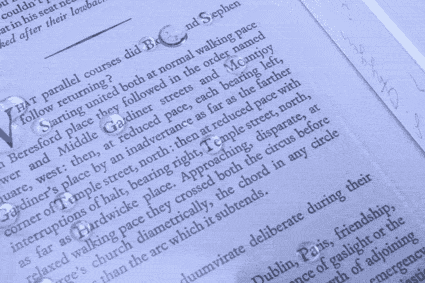 couldn't
at in his seat
ked after their
WHAT parallel courses did B nd Stephen
follow returning?
Starting united both at normal walking pace
Beresford place they followed in the order named
wer and Middle Gardiner streets and
uare, west: then, at reduced pace, each bearing left,
Gardiner's place by an inadvertence as far as the farther
corner of Temple street, north: then at reduced pace with
interruptions of halt, bearing right, Temple street, north,
as far as Hardwicke place. Approaching, disparate, at
relaxed walking pace they crossed both the circus before
rge's church diametrically, the chord in any circle
than the arc which it subtends.
duumvirate deliberate during their
Dublin, Paris, friendship,
ence of gaslight or the
th of adjoining
emergency